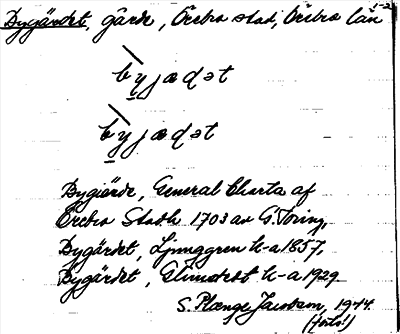 Bygärdet, gärde, Örebro stad, Örebro län
byjædət
byjædət
Bygiärde, General Charta af
Örebro Stadh 1703 av G. Toring,
Bygärdet, Ljunggren k-a 1857,
Bygärdet, k-a 1929
S. Plænge Jacobson, 1944.
(forts.)